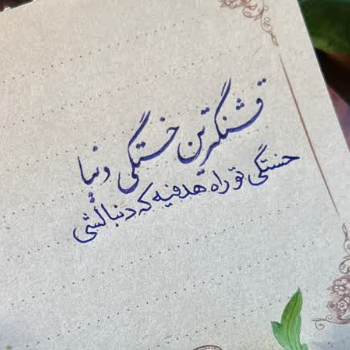 قشنگترین خستگی دنیا
خستگی تو راه هدفیه که دنبالشی